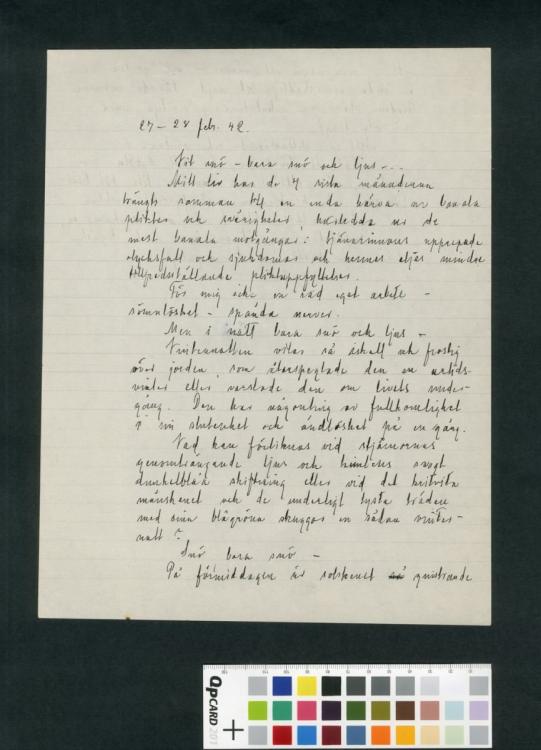 27–28 febr. 42.
Vit snö – bara snö och ljus – – .
Mitt liv har de 4 sista månaderna
trängts samman till en enda härva av banala
plikter och svårigheter härledda ur de
mest banala motgångar: tjänarinnors upprepade
olycksfall och sjukdomar och hennes eljes mindre
tillfredsställande pliktuppfyllelse.
För mig icke en rad eget arbete –
sömnlöshet – spända nerver.
Men i natt bara snö och ljus –
Vinternatten vilar så iskall och frostig
över jorden som återspeglade den en artids-
vinter eller varslade den om livets under-
gång. Den har någonting av fullkomlighet
i sin slutenhet och ändlöshet på en gång.
Vad kan förliknas vid stjärnornas
genomträngande ljus och himlens svagt
dunkelblåa skiftning eller vid det kritvita
månskenet och de underligt tysta träden
med sina blågröna skuggor en sådan vinter-
natt?
Snö bara snö –
På förmiddagen är solskenet gnistrande
QPCARD 201